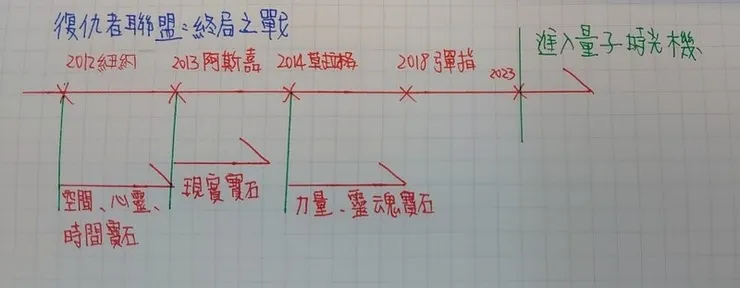 復仇者聯盟:終局之戰
進入量子時光機
2012紐約
2013阿斯嘉
2014莫拉格
2018彈指
2023
空間、心靈、
時間寶石
現實寶石
力量、靈魂寶石